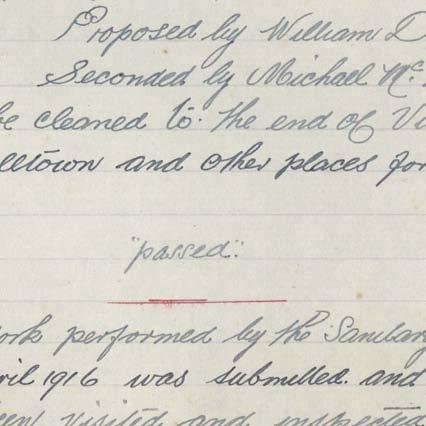 Proposed by William D
Seconded by Michael Mc
be cleaned to the end of Vi
lltown and other places for
"passed".
ork performed by the Sanitary
ril 1916 was submitted. and
een visited and inspected